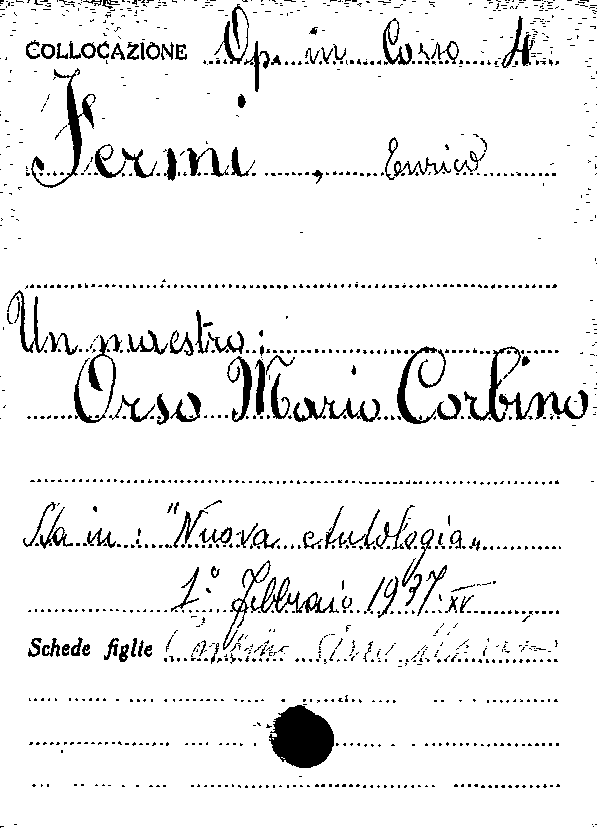 COLLOCAZIONE Op. in Corso 4
Fermi, Enrico
Un maestro:
Orso Mario Corbino
Sta in: "Nuova Antologia„
1.° Febbraio 1937.XV
Schede figlie Corbino Orso Mario